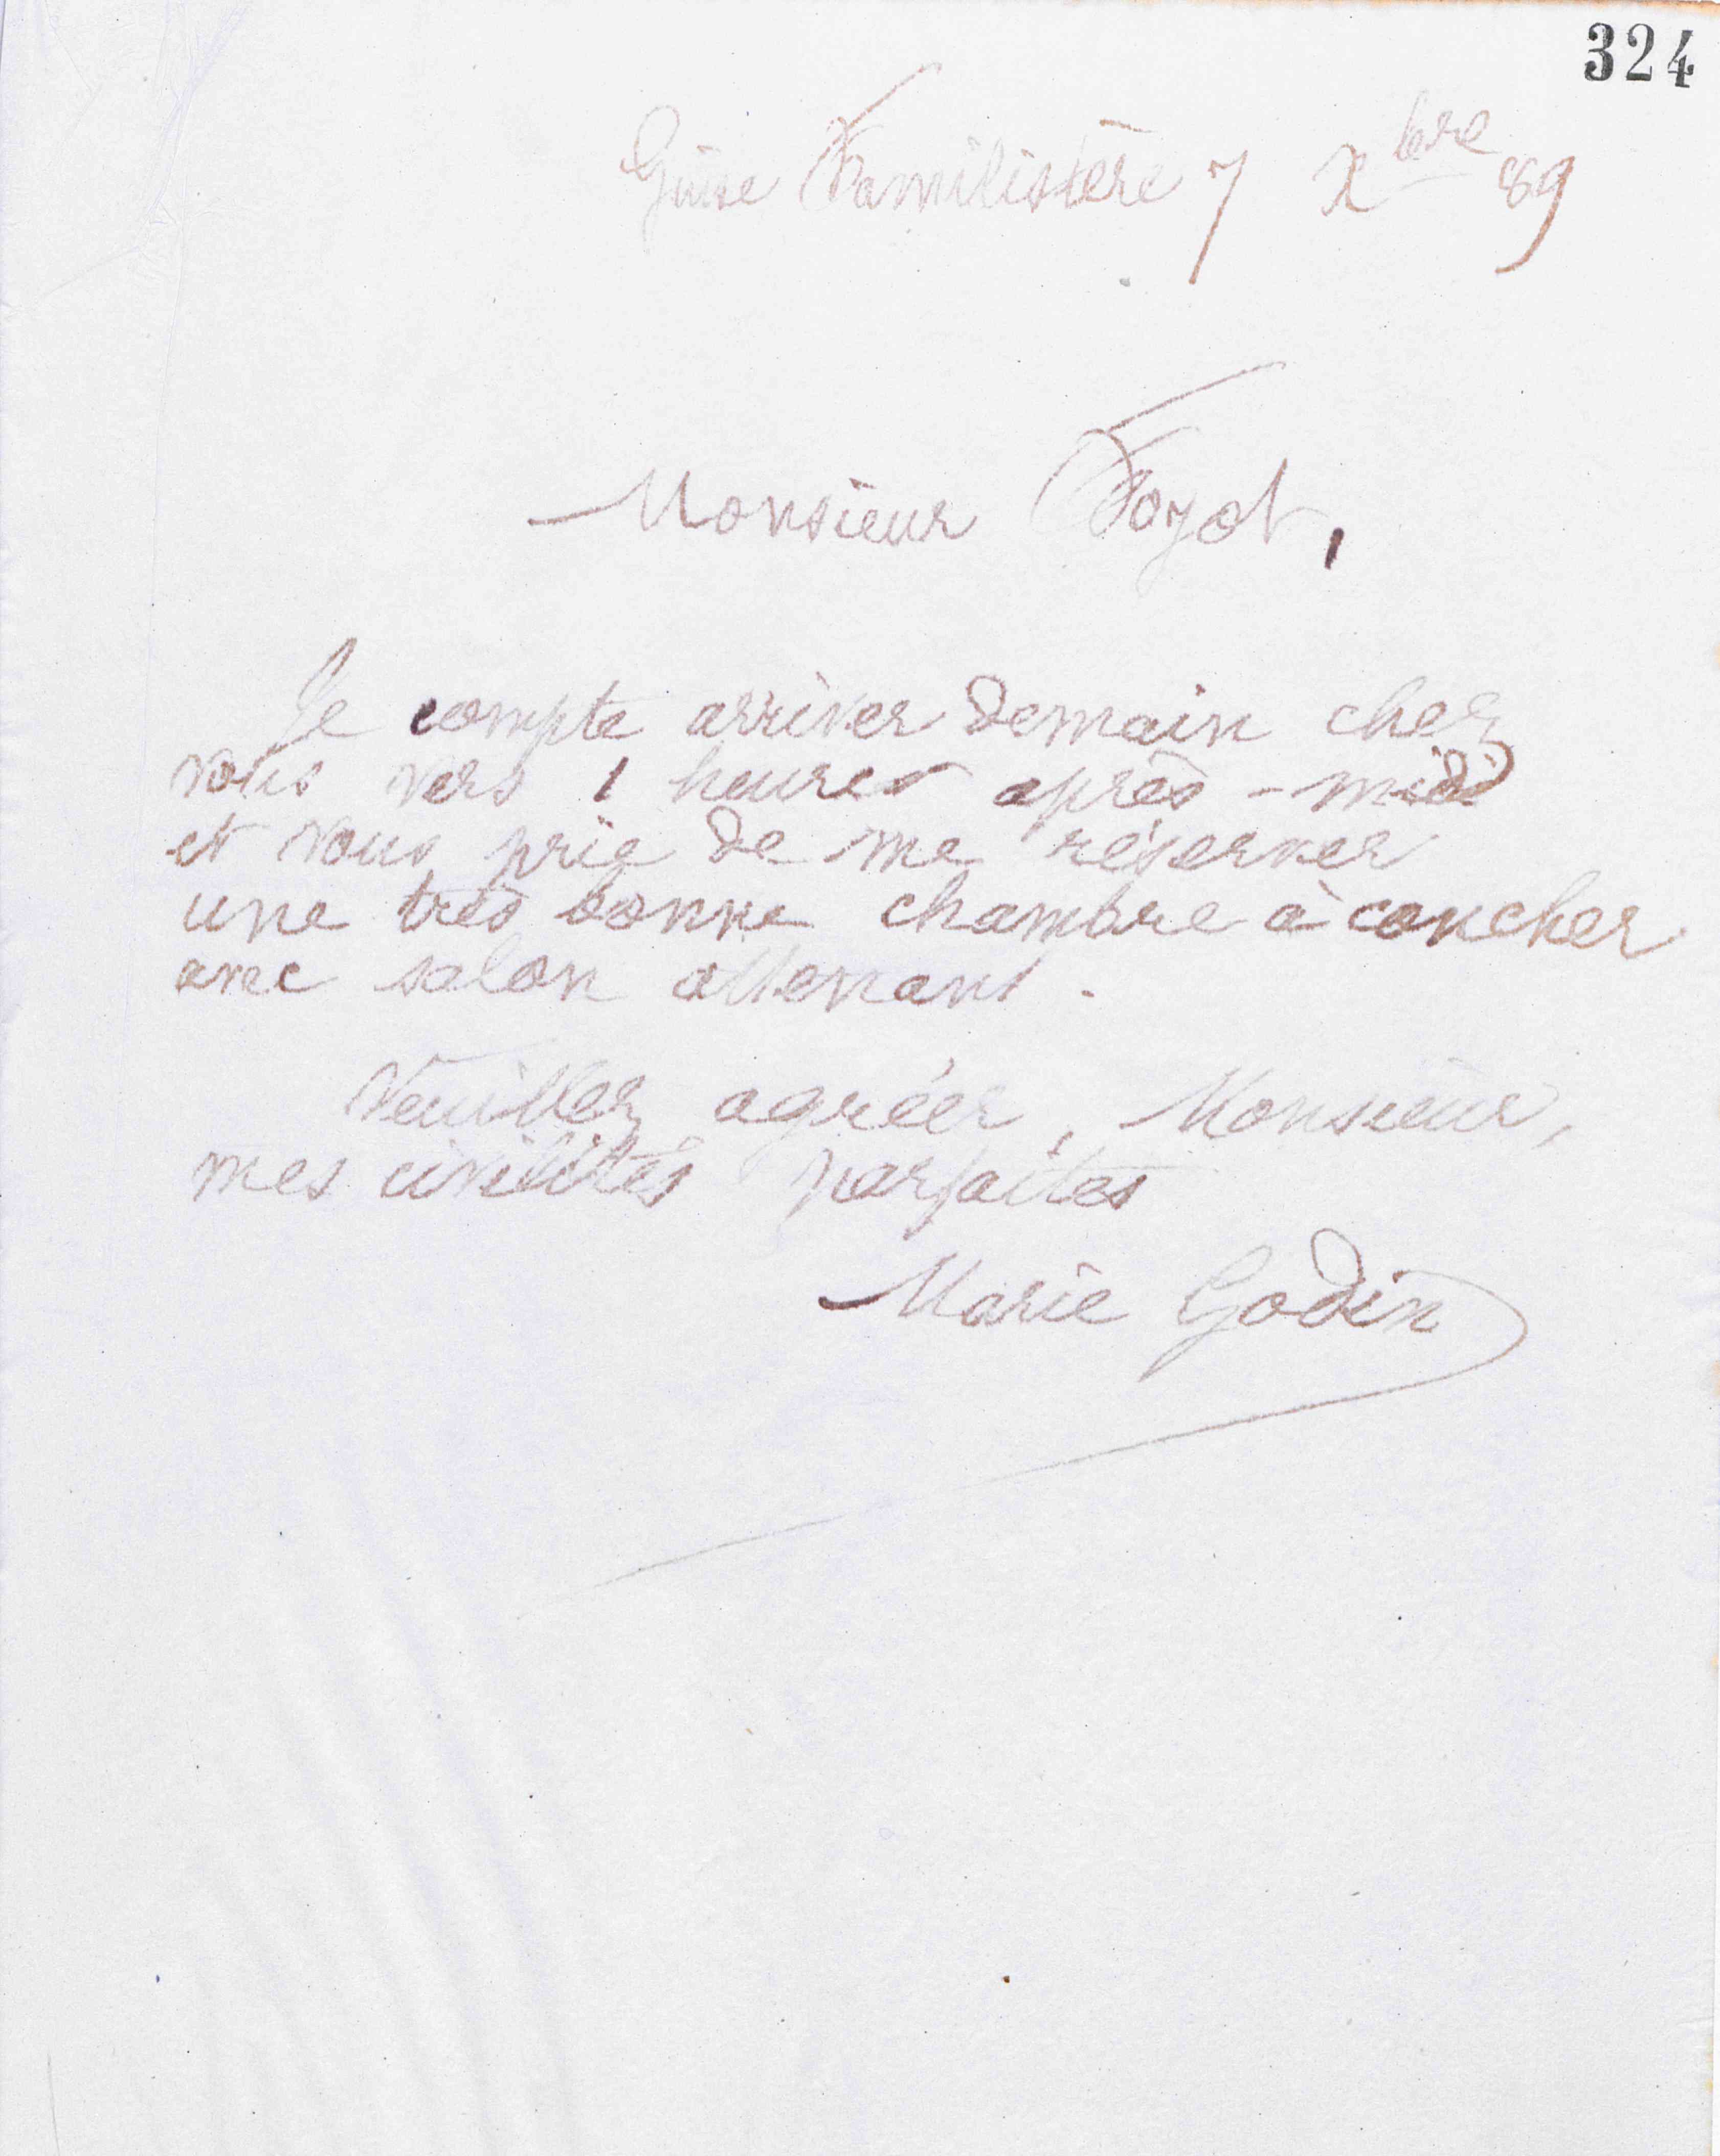 324
Guise Familistère 7 Xbre 89
Monsieur Foyot,
Je compte arriver demain chez
vous vers 1 heures après-midi
et vous prie de me réserver
une très bonne chambre à coucher
avec salon attenant.
Veuillez agréer, Monsieur,
mes civilités parfaites
Marie Godin